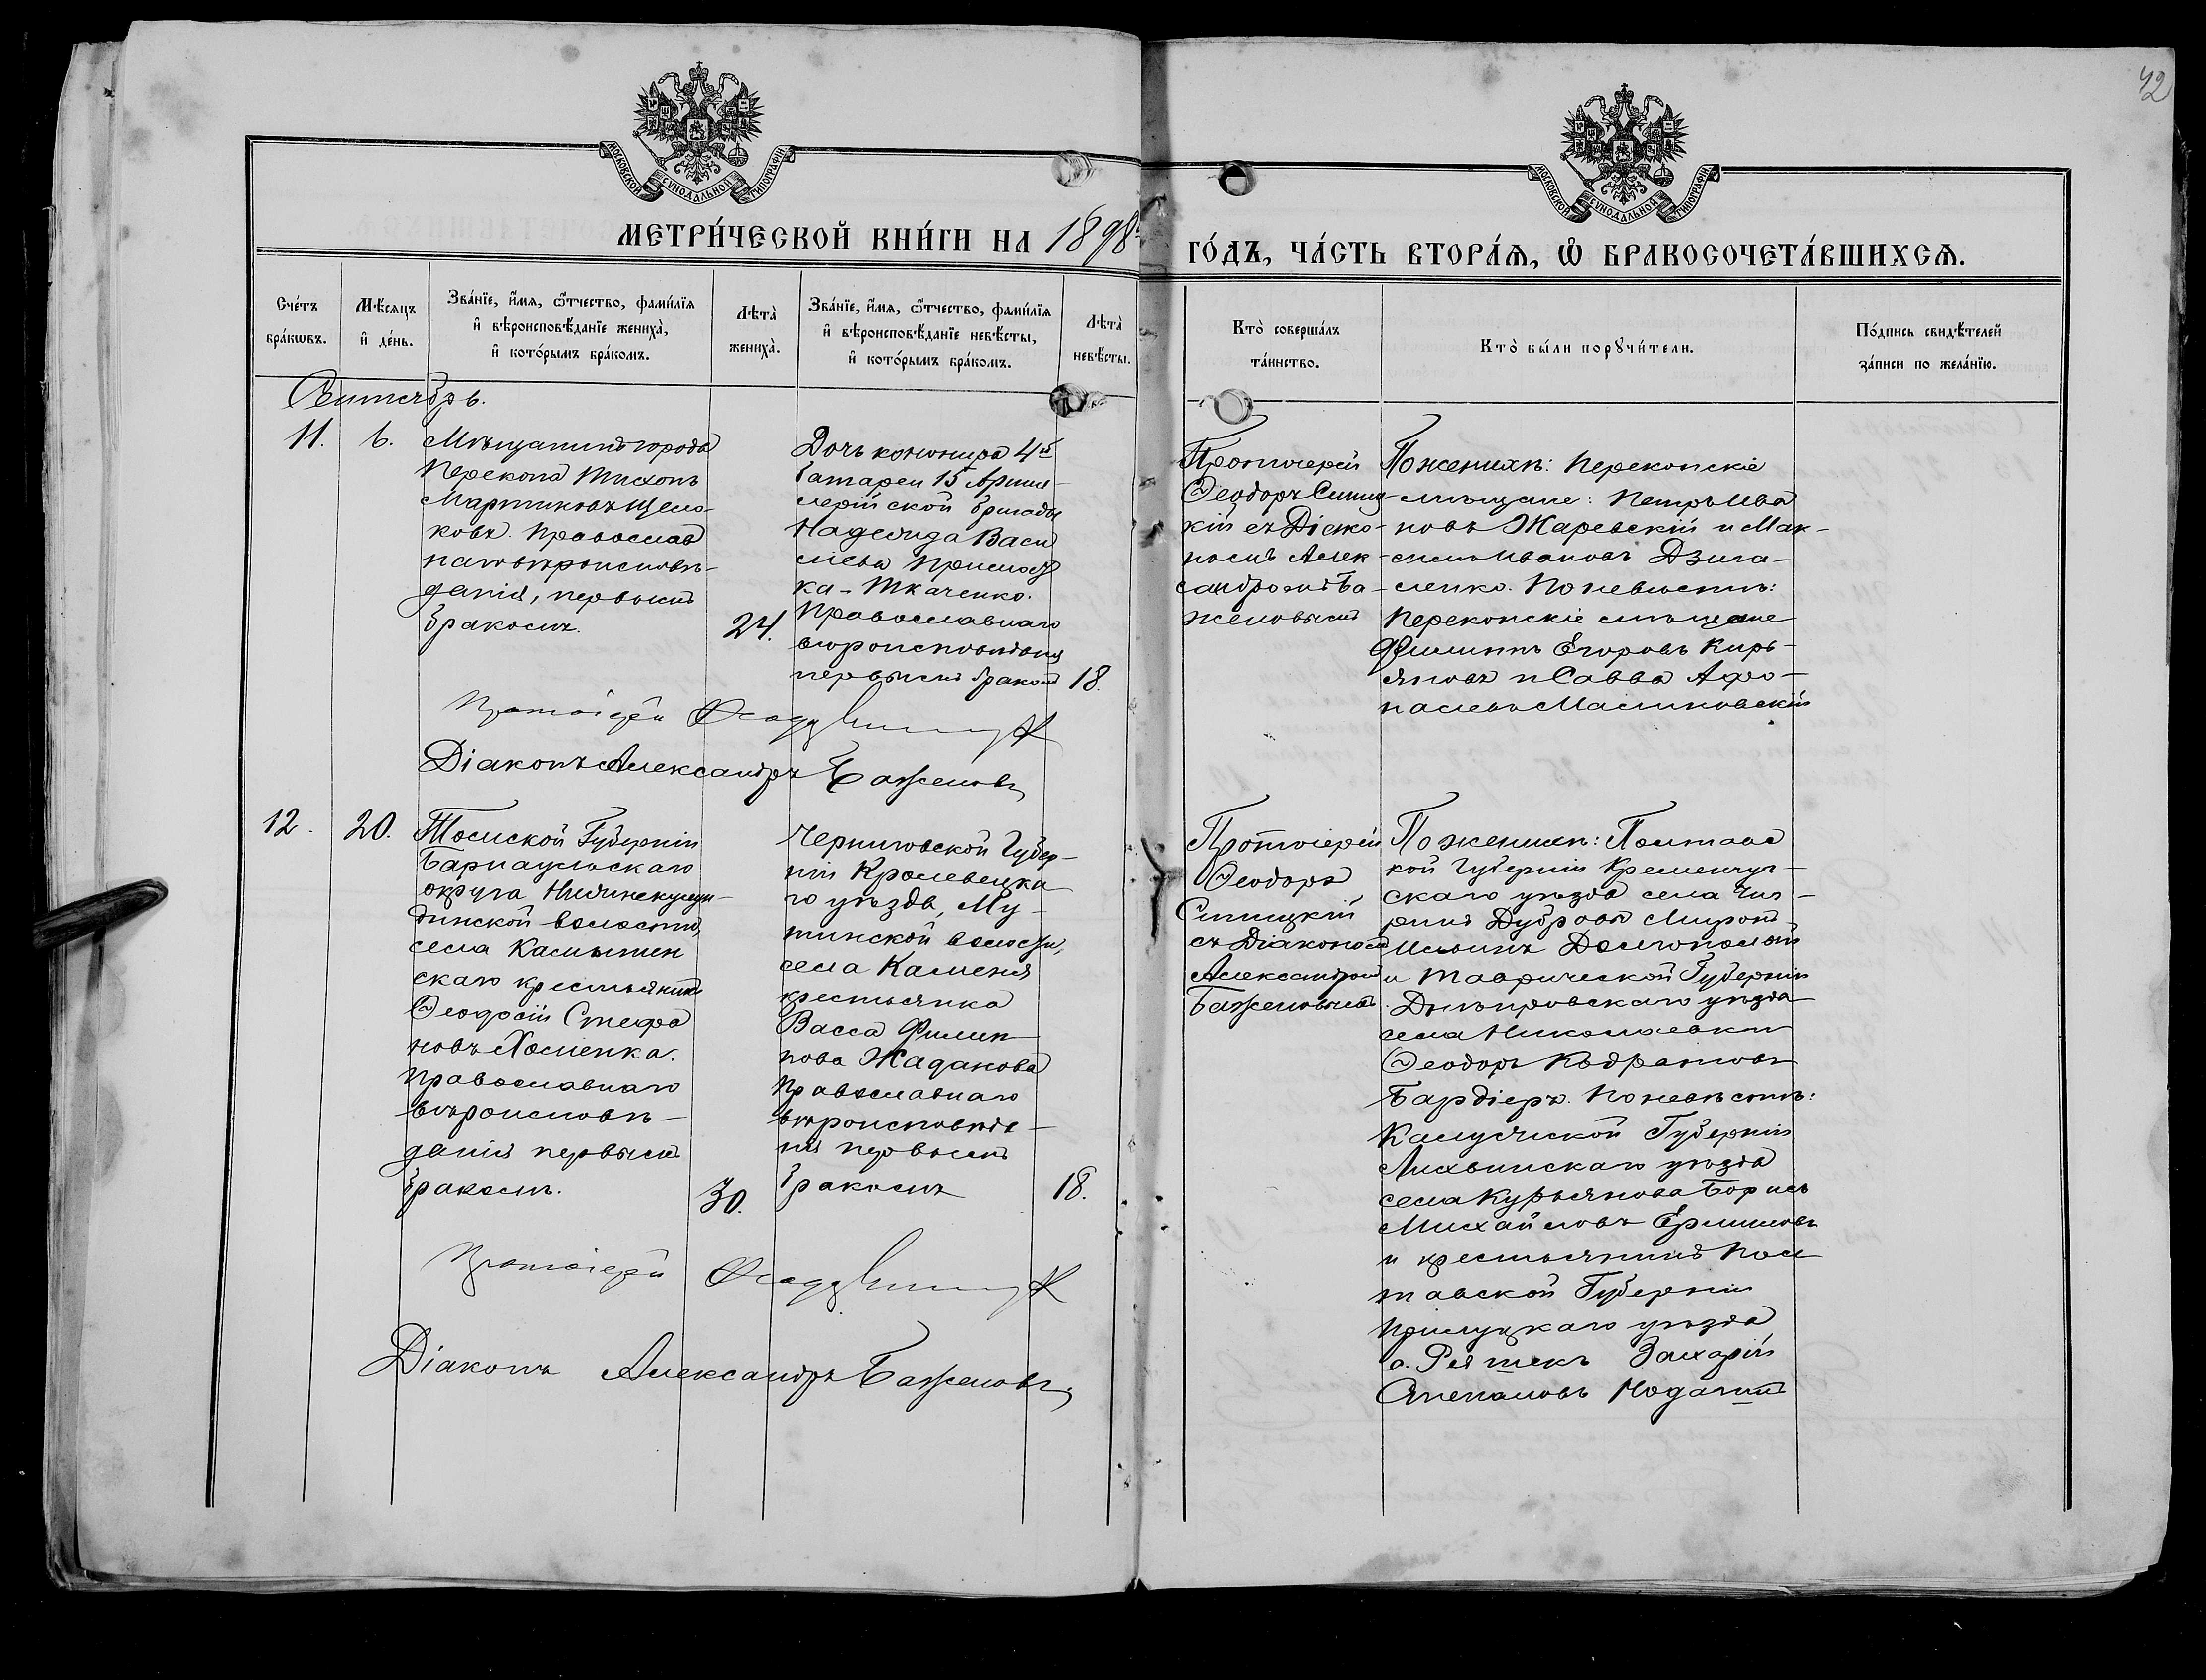 42
МОСКОВСКОЙ СѴНОДАЛЬНОЙ ТИПОГРАФІИ
МОСКОВСКОЙ СѴНОДАЛЬНОЙ ТИПОГРАФІИ
МЕТРИ́ЧЕСКОЙ КНИ́ГИ НА 1898
ГО́ДЪ, ЧА́СТЬ ВТОРА́Ѧ, Ѽ БРАКОСОЧЕТА́ВШИХСѦ.
Сче́тъ
бра́кѡвъ.
Мѣ́сяцъ
и҆ де́нь.
Зва́нїе, и҆́мѧ, ѻ҆́тчество, фами́лїѧ
и҆ вѣроисповѣ́данїе жениха̀,
и҆ кото́рымъ бра́комъ.
Лѣта̀
жениха̀.
Зва́нїе, и҆́мѧ, ѻ҆́тчество, фами́лїѧ
и҆ вѣроисповѣ́данїе невѣ́сты,
и҆ кото́рымъ бра́комъ.
Лѣта̀
невѣ́сты.
Кто̀ соверша́лъ
та́инство.
Кто̀ бы́ли порꙋчи́тели.
По́дпись свидѣ́телей
за́писи по жела́нїю.
Сентябрь.
11.
6.
Мѣщанинъ города
Перекопа Тихонъ
Мартиновъ Щело-
ковъ. Православ
наго вѣроисповѣ-
данія, первымъ
бракомъ.
24.
Дочь канонира 4й
батареи 15 Артил-
лерійской бригады
Надежда Васи
льева
ка-Ткаченко.
Православнаго
вѣроисповѣданія
первымъ бракомъ
18.
Протоіерей
Ѳеодоръ Синиц-
кій съ Діако-
номъ Алек-
сандромъ Ба-
женовымъ
По женихѣ: Перекопскіе
мѣщане: Петръ Ива
новъ Жаревскій и Мак-
симъ Ивановъ Дзига-
ленко. По невѣстѣ:
Перекопскіе мѣщане
Филиппъ Егоровъ Кирь-
яновъ и Савва Афа-
насьевъ Малиновскій
Протоіерей Ѳеодоръ Синицкій
Діаконъ Александръ Баженовъ
12.
20.
Томской Губерніи
Барнаульскаго
округа Нижнекулун-
динской волости,
села Камышен
скаго крестьянинъ
Ѳеодосій Стефа
новъ Хоменко.
Православнаго
вѣроисповѣ-
данія первымъ
бракомъ.
30.
Черниговской Губер-
ніи Кролевецка
го уѣзда, Му-
тинской волости,
села Каменя
крестьянка
Васса Филип
пова Жаданова
Православнаго
вѣроисповѣда-
нія первымъ
бракомъ
18.
Протоіерей
Ѳеодоръ
Синицкій
съ Діакономъ
Александромъ
Баженовымъ.
По женихѣ: Полтавс
кой Губерніи Кременчуг-
скаго уѣзда села Чиг-
ринъ Дубровы Миронъ
Ильинъ Долгополый
и Таврической Губерніи
Днѣпровскаго уѣзда
села Николаевки
Ѳеодоръ Кодратовъ
Бардіеръ. По невѣстѣ:
Калужской Губерніи
Лихвинскаго уѣзда
села Курьянова Борисъ
Михайловъ Ермиловъ
и крестьянинъ Пол
тавской Губерніи
Прилуцкаго уѣзда
Захарій
Степановъ
Протоіерей Ѳеодоръ Синицкій
Діаконъ Александръ Баженовъ